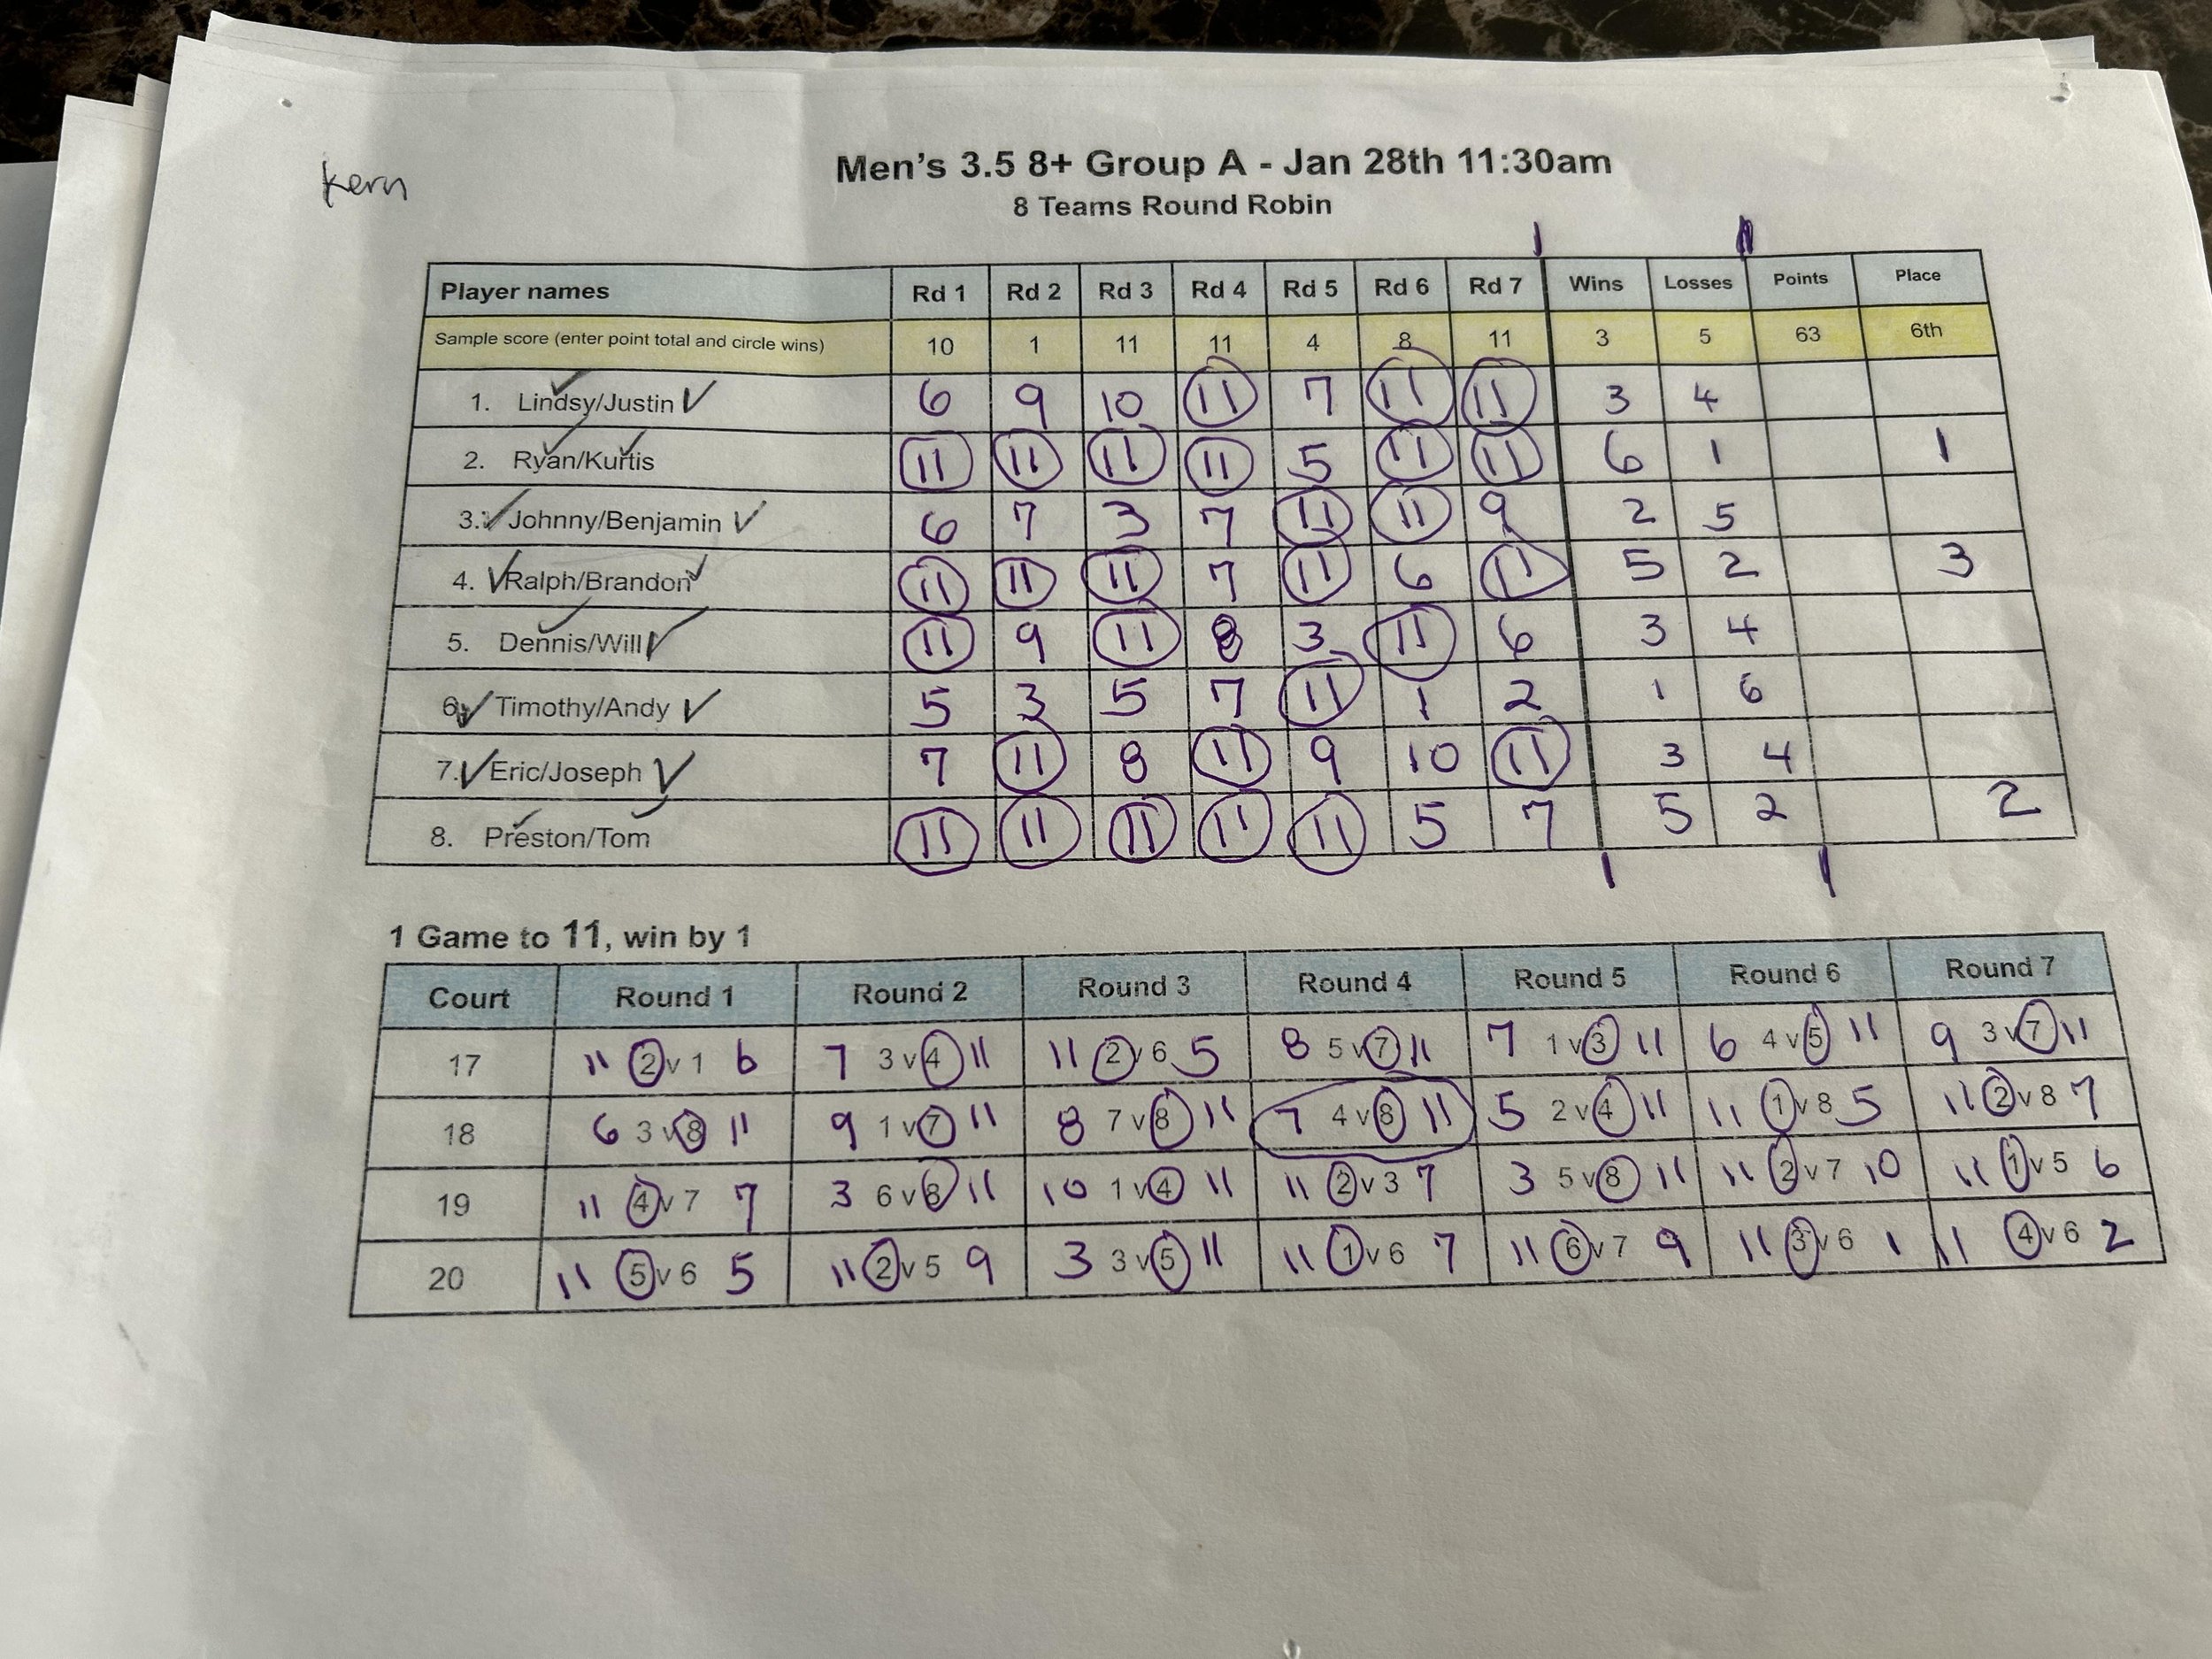 Kern
Men's 3.5 8+ Group A - Jan 28th 11:30am
8 Teams Round Robin
Player names Rd 1 Rd 2 Rd 3 Rd 4 Rd 5 Rd 6 Rd 7 Wins Losses Points Place
Sample score (enter point total and circle wins) 10 1 11 11 4 8 11 3 5 63 6th
1. Lindsy/Justin 6 9 10 11 7 11 11 3 4
2. Ryan/Kurtis 11 11 11 11 5 11 11 6 1 1
3. Johnny/Benjamin 6 7 3 7 11 11 9 2 5
4. Ralph/Brandon 11 11 11 7 11 6 11 5 2 3
5. Dennis/Will 11 9 11 8 3 11 6 3 4
6. Timothy/Andy 5 3 5 7 11 1 2 1 6
7. Eric/Joseph 7 11 8 11 9 10 11 3 4
8. Preston/Tom 11 11 11 11 11 5 7 5 2 2
1 Game to 11, win by 1
Court Round 1 Round 2 Round 3 Round 4 Round 5 Round 6 Round 7
17 11 2 v 1 6 7 3 v 4 11 11 2 v 6 5 8 5 v 7 11 7 1 v 3 11 6 4 v 5 11 9 3 v 7 11
18 6 3 v 8 11 9 1 v 7 11 8 7 v 8 11 7 4 v 8 11 5 2 v 4 11 11 1 v 8 5 11 2 v 8 7
19 11 4 v 7 7 3 6 v 8 11 10 1 v 4 11 11 2 v 3 7 3 5 v 8 11 11 2 v 7 10 11 1 v 5 6
20 11 5 v 6 5 11 2 v 5 9 3 3 v 5 11 11 1 v 6 7 11 6 v 7 9 11 3 v 6 1 11 4 v 6 2